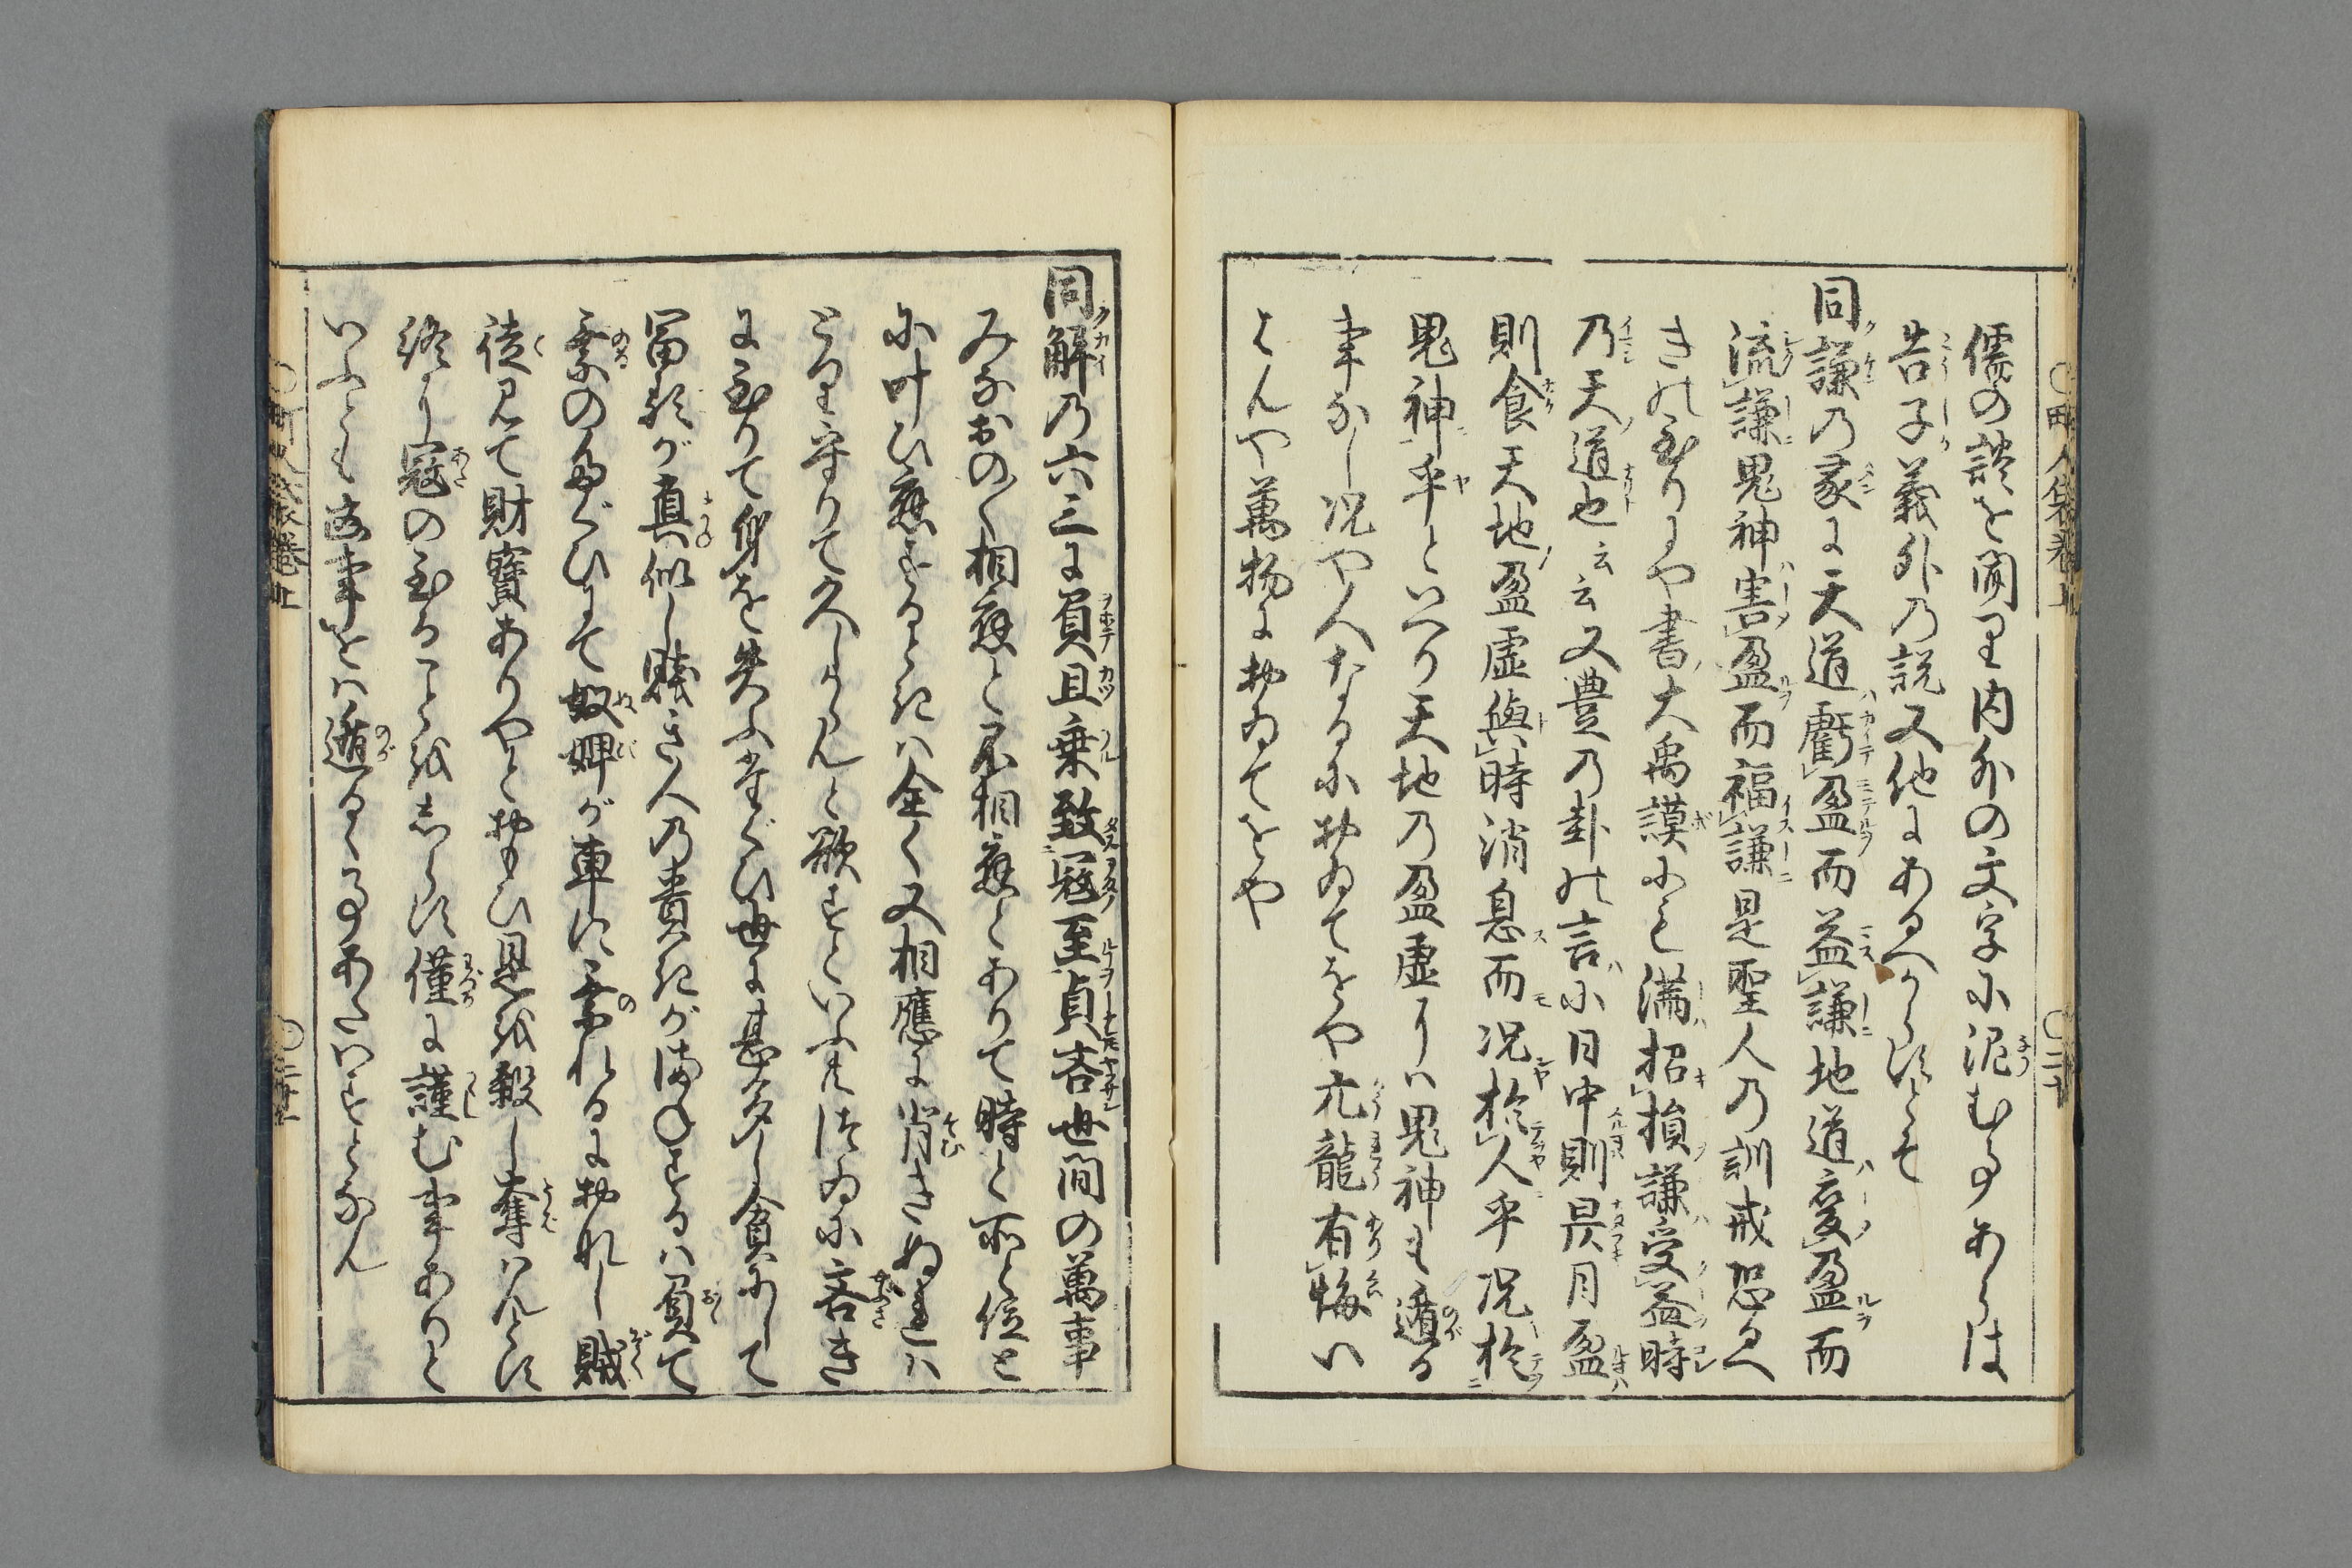 儒の談を聞て内外の文字に泥む事あらは
告子義外の説又他にあるへからすとそ
同謙の彖に天道虧盈而益謙地道変盈而
流謙鬼神害盈而福謙是聖人の訓戒恐るへ
きの至りにや書大禹謨にも満招損謙受益時
乃天道也云云又豊の卦の言に日中則昃月盈
則食天地盈虚與時消息而況於人乎況於
鬼神乎といへり天地の盈虚には鬼神も遁る
事なし況や人たるにおゐてをや亢龍有悔い
はんや萬物におゐてをや
同解の六三に負且乗致寇至貞吝世間の萬事
みなおの〱相應と不相應とありて時と所と位と
に叶ひ應するときは全く又相應に背きぬれは
とて守りて久しからんと欲すといふ共つゐに吝き
に至りて身を失ふたぐひ世に甚多し貪にして
冨るが真似し賤き人の貴きがまねするは負て
乗のたぐひにて奴婢が車に乗れるにおなし賊
徒見て財寶ありやとおもひ是を殺し奪はんとす
終に寇の至ることを志らす僅に謹む事ありと
いふとも此事をは遁るゝ事あたはすとなん